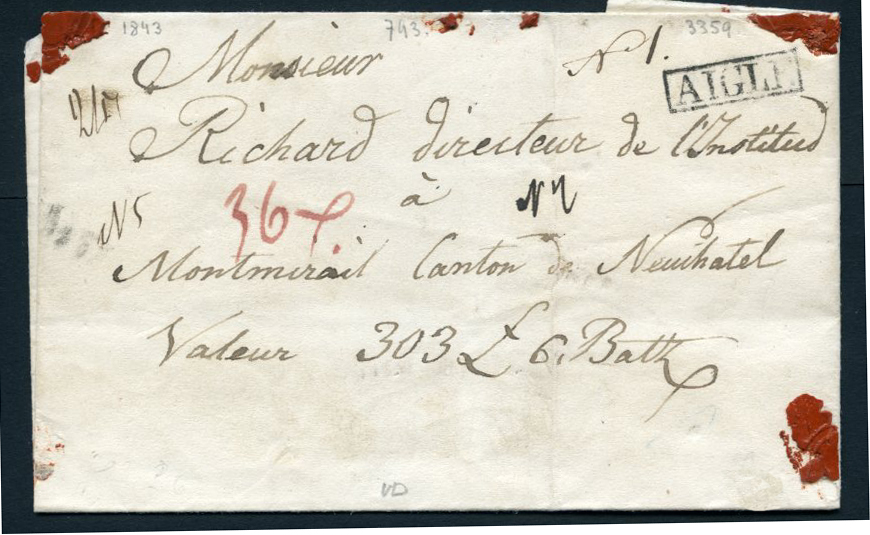 1843 743. 3359
Monsieur No 1.
AIGLE
Richard directeur de l'Institud
à
N 5 36
Montmirail Canton de Neuchatel
Valeur 303 L 6. Batz
VD